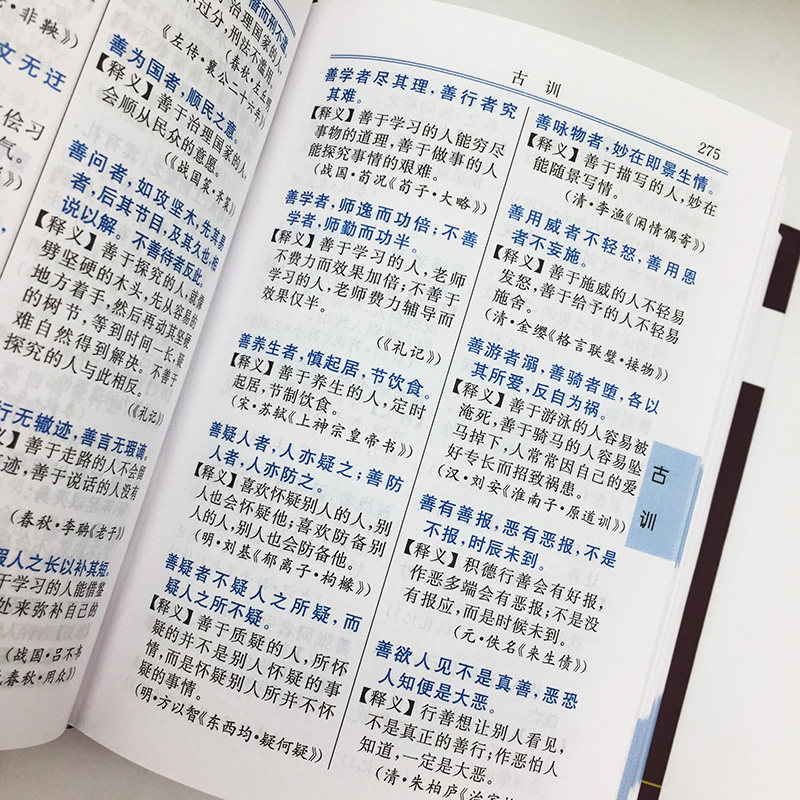 蓄而刑不滥。
不过分，刑法不滥用。
治理国家的人，
（春秋·左丘明
《左传·襄公二十六年》）
善为国者，顺民之意。
【释义】善于治理国家的人，
会顺从民众的意愿。
（《战国策·齐策》）
善问者，如攻坚木，先其易
者，后其节目，及其久也，相
说以解。不善待者反此。
【释义】善于探究的人，就像
劈坚硬的木头，先从容易的
地方着手，然后再动其坚硬
的树节，等到时间一长，疑
难自然得到解决。不善于
探究的人与此相反。
（《礼记》）
行无辙迹，善言无瑕谪。
善于走路的人不会留
迹，善于说话的人没有
（春秋·李聃《老子》）
假人之长以补其短。
善于学习的人能借鉴
处来弥补自己的
（战国·吕不韦
氏春秋·用众》）
·非鞅》）
文无迂
气。
古 训
275
善学者尽其理，善行者究
其难。
【释义】善于学习的人能穷尽
事物的道理，善于做事的人
能探究事情的艰难。
（战国·荀况《荀子·大略》）
善学者，师逸而功倍；不善
学者，师勤而功半。
【释义】善于学习的人，老师
不费力而效果加倍；不善于
学习的人，老师费力辅导而
效果仅半。
（《礼记》）
善养生者，慎起居，节饮食。
【释义】善于养生的人，定时
起居，节制饮食。
（宋·苏轼《上神宗皇帝书》）
善疑人者，人亦疑之；善防
人者，人亦防之。
【释义】喜欢怀疑别人的人，别
人也会怀疑他；喜欢防备别
人的人，别人也会防备他。
（明·刘基《郁离子·枸橼》）
善疑者不疑人之所疑，而
疑人之所不疑。
【释义】善于质疑的人，所怀
疑的并不是别人怀疑的事
情，而是怀疑别人所并不怀
疑的事情。
（明·方以智《东西均·疑何疑》）
善咏物者，妙在即景生情。
【释义】善于描写的人，妙在
能随景写情。
（清·李渔《闲情偶寄》）
善用威者不轻怒，善用恩
者不妄施。
【释义】善于施威的人不轻易
发怒，善于给予的人不轻易
施舍。
（清·金缨《格言联璧·接物》）
善游者溺，善骑者堕，各以
其所爱，反自为祸。
【释义】善于游泳的人容易被
淹死，善于骑马的人容易坠
马掉下，人常常因自己的爱
好专长而招致祸患。
（汉·刘安《淮南子·原道训》）
善有善报，恶有恶报，不是
不报，时辰未到。
【释义】积德行善会有好报，
作恶多端会有恶报；不是没
有报应，而是时候未到。
（元·佚名《来生债》）
善欲人见不是真善，恶恐
人知便是大恶。
【释义】行善想让别人看见，
不是真正的善行；作恶怕人
知道，一定是大恶。
（清·朱柏庐《治家
古
训